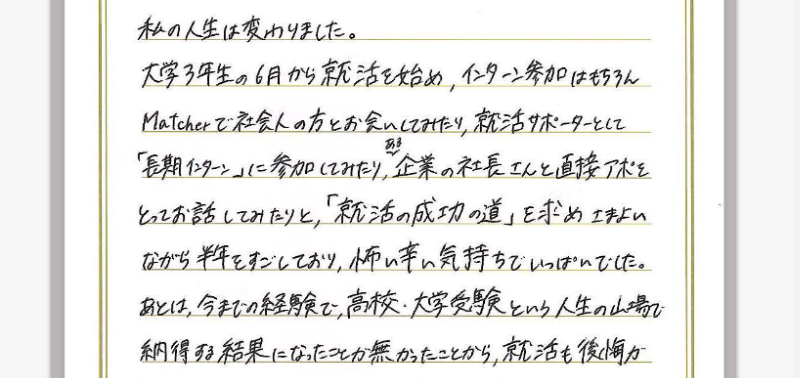 私の人生は変わりました。
大学3年生の6月から就活を始め,インターン参加はもちろん
Matcherで社会人の方とお会いしてみたり,就活サポーターとして
「長期インターン」に参加してみたり,ある企業の社長さんと直接アポを
とってお話してみたりと,「就活の成功の道」を求めさまよい
ながら半年をすごしており,怖い辛い気持ちでいっぱいでした。
あとは,今までの経験で,高校・大学受験という人生の山場で
納得する結果になったことが無かったことから,就活も後悔が